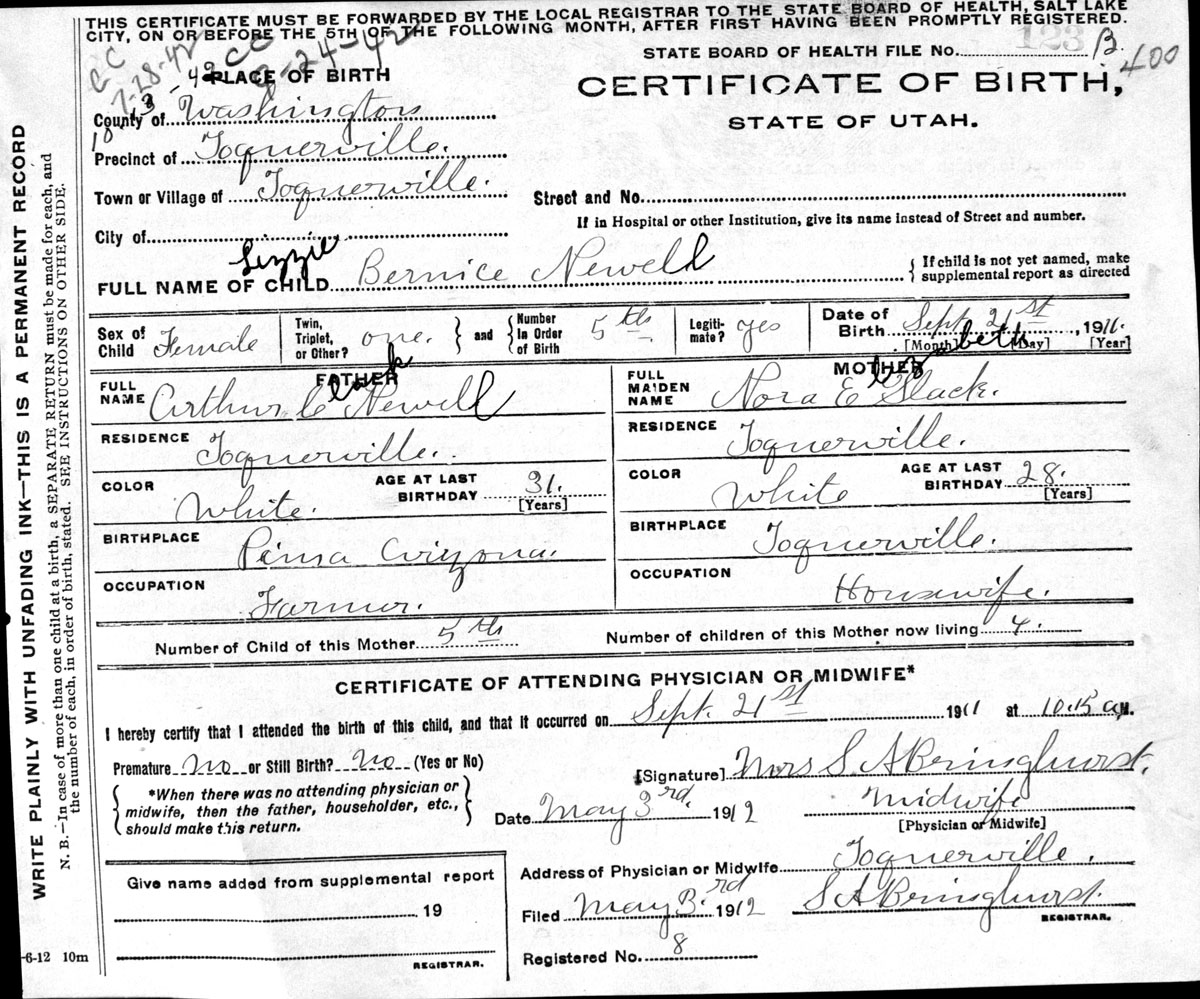 THIS CERTIFICATE MUST BE FORWARDED BY THE LOCAL REGISTRAR TO THE STATE BOARD OF HEALTH, SALT LAKE
CITY, ON OR BEFORE THE 5TH OF THE FOLLOWING MONTH, AFTER FIRST HAVING BEEN PROMPTLY REGISTERED.
CC 7-28-42
CC 9-24-42
STATE BOARD OF HEALTH FILE No. 123 B
400
PLACE OF BIRTH
CERTIFICATE OF BIRTH,
STATE OF UTAH.
County of Washington
Precinct of Toquerville.
Town or Village of Toquerville.
Street and No.
If in Hospital or other Institution, give its name instead of Street and number.
City of
Lizzie
FULL NAME OF CHILD Bernice Newell
{ If child is not yet named, make supplemental report as directed
Sex of Child Female
Twin, Triplet, or Other? one. } and { Number in Order of Birth 5th
Legitimate? yes
Date of Birth Sept. 21st, 1911.
[Month] [Day] [Year]
FATHER
FULL NAME Arthur Clark Newell
RESIDENCE Toquerville.
COLOR White.
AGE AT LAST BIRTHDAY 31. [Years]
BIRTHPLACE Pima Arizona.
OCCUPATION Farmer.
MOTHER
FULL MAIDEN NAME Nora Elizabeth Slack.
RESIDENCE Toquerville.
COLOR White
AGE AT LAST BIRTHDAY 28. [Years]
BIRTHPLACE Toquerville.
OCCUPATION Housewife.
Number of Child of this Mother 5th
Number of children of this Mother now living 4.
CERTIFICATE OF ATTENDING PHYSICIAN OR MIDWIFE*
I hereby certify that I attended the birth of this child, and that it occurred on Sept. 21st 1911 at 10.15 a.M.
Premature No or Still Birth? No (Yes or No)
*When there was no attending physician or
midwife, then the father, householder, etc.,
should make this return.
[Signature] Mrs S. A Bringhurst.
Date May 3rd. 1912
Midwife
[Physician or Midwife]
Address of Physician or Midwife Toquerville.
Filed May 3.rd 1912
S A Bringhurst.
REGISTRAR.
Registered No. 8
Give name added from supplemental report
19
REGISTRAR.
-6-12 10m
WRITE PLAINLY WITH UNFADING INK—THIS IS A PERMANENT RECORD
N. B.—In case of more than one child at a birth, a SEPARATE RETURN must be made for each, and
the number of each, in order of birth, stated. SEE INSTRUCTIONS ON OTHER SIDE.